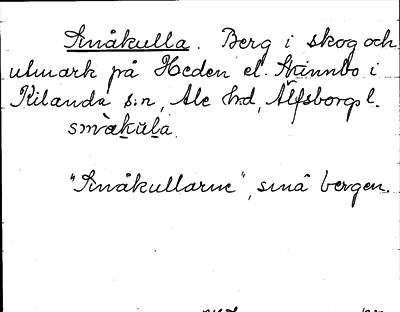 Småkulla. Berg i skog och
utmark på Heden el. Skinnbo i
Kilanda s:n, Ale hd, Älfsborgs l.
småkula.
"Småkullarne", små bergen.